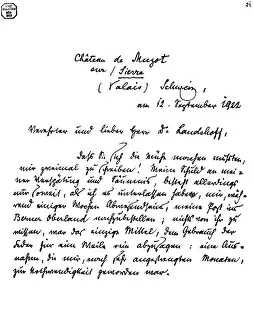 Château de Muzot
sur / Sierre
(Valais) Schweiz,
am 12. September 1922
Verehrter und lieber Herr Dr Landshoff,
daß Sie sich die Mühe machen mußten,
mir zweimal zu schreiben! Meine Schuld an meiner
Verspätung und Säumnis, besteht allerdings
nur soweit, als ich es unterlassen habe, mir, während
einiger Wochen Abwesenheit, meine Post ins
Berner Oberland nachzubestellen; nichts von ihr zu
wissen, war das einzige Mittel, dem Gebrauch der
Feder für eine Weile rein abzusagen: eine Ausnahme,
die mir, nach sehr angestrengten Monaten,
zur Nothwendigkeit geworden war.